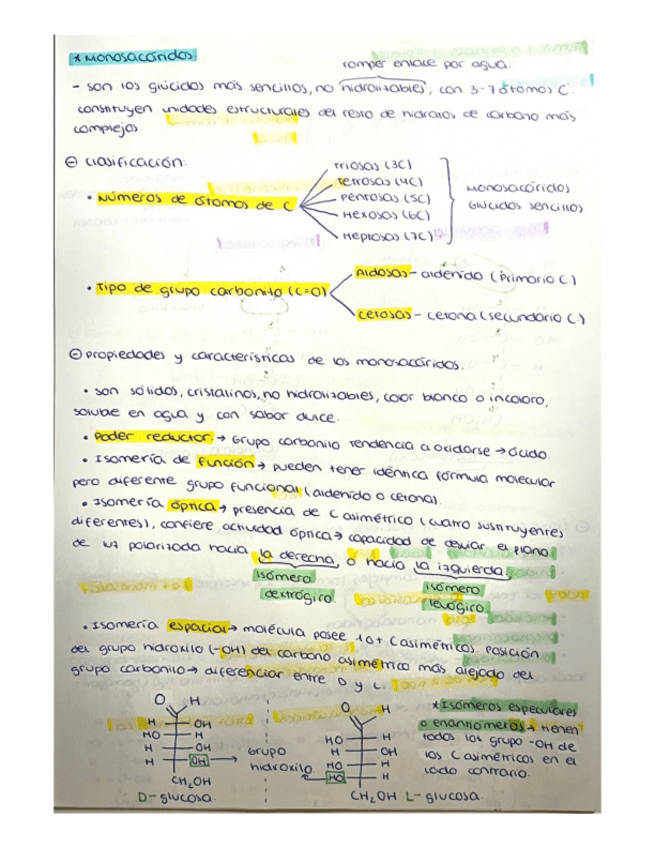 * Monosacáridos.
romper enlace por agua.
- son los glúcidos más sencillos, no hidrolizables, con 3-7 átomos C.
constituyen unidades estructurales del resto de hidratos de carbono más
complejos.
⊖ Clasificación:
• Números de átomos de C
Triosas (3C)
Tetrosas (4C)
Pentosas (5C)
Hexosas (6C)
Heptosas (7C)
Monosacáridos.
Glúcidos sencillos
• Tipo de grupo carbonilo (C=O)
Aldosas - aldehído (primario C.)
Cetosas - cetona (secundario C.)
⊖ propiedades y características de los monosacáridos.
• son sólidos, cristalinos, no hidrolizables, color blanco o incoloro,
soluble en agua y con sabor dulce.
• Poder reductor. → Grupo carbonilo tendencia a oxidarse → ácido.
• Isomería de función → pueden tener idéntica fórmula molecular
pero diferente grupo funcional (aldehído o cetona).
• Isomería óptica → presencia de C asimétrico (cuatro sustituyentes
diferentes), confiere actividad óptica → capacidad de desviar el plano
de luz polarizada hacia la derecha, o hacia la izquierda.
isómero
dextrógiro.
isómero
levógiro.
• Isomería espacial → molécula posee 1 o + C asimétricos. Posición
del grupo hidroxilo (-OH) del carbono asimétrico más alejado del
grupo carbonilo → diferenciar entre D y L.
O H
H OH
HO H
H OH
H OH
CH₂OH
D-glucosa.
Grupo
hidroxilo
O H
HO H
H OH
HO H
HO H
CH₂OH L-glucosa.
* Isómeros especulares
o enantiómeros → tienen
todos los grupo -OH de
los C asimétricos en el
lado contrario.